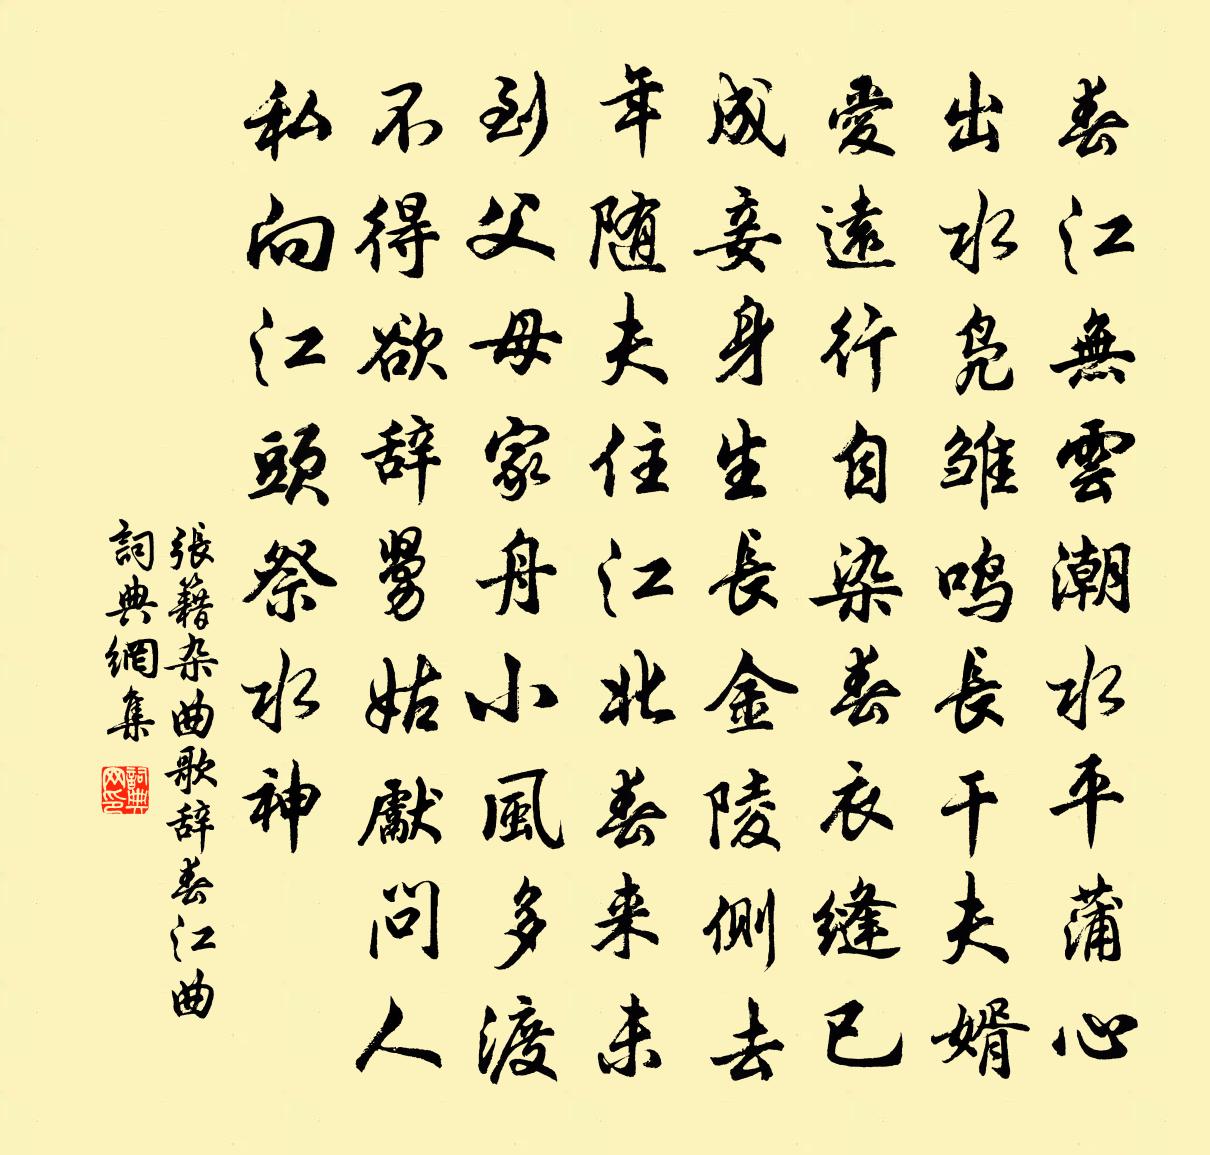 春江無雲潮水平蒲心
出水凫雏鸣長干夫婿
愛遠行自染春衣缝已
成妾身生長金陵側去
年随夫住江北春来未
到父母家舟小風多渡
不得欲辞舅姑獻問人
私向江頭祭水神
張籍杂曲歌辞春江曲
詞典網集
詞典网印